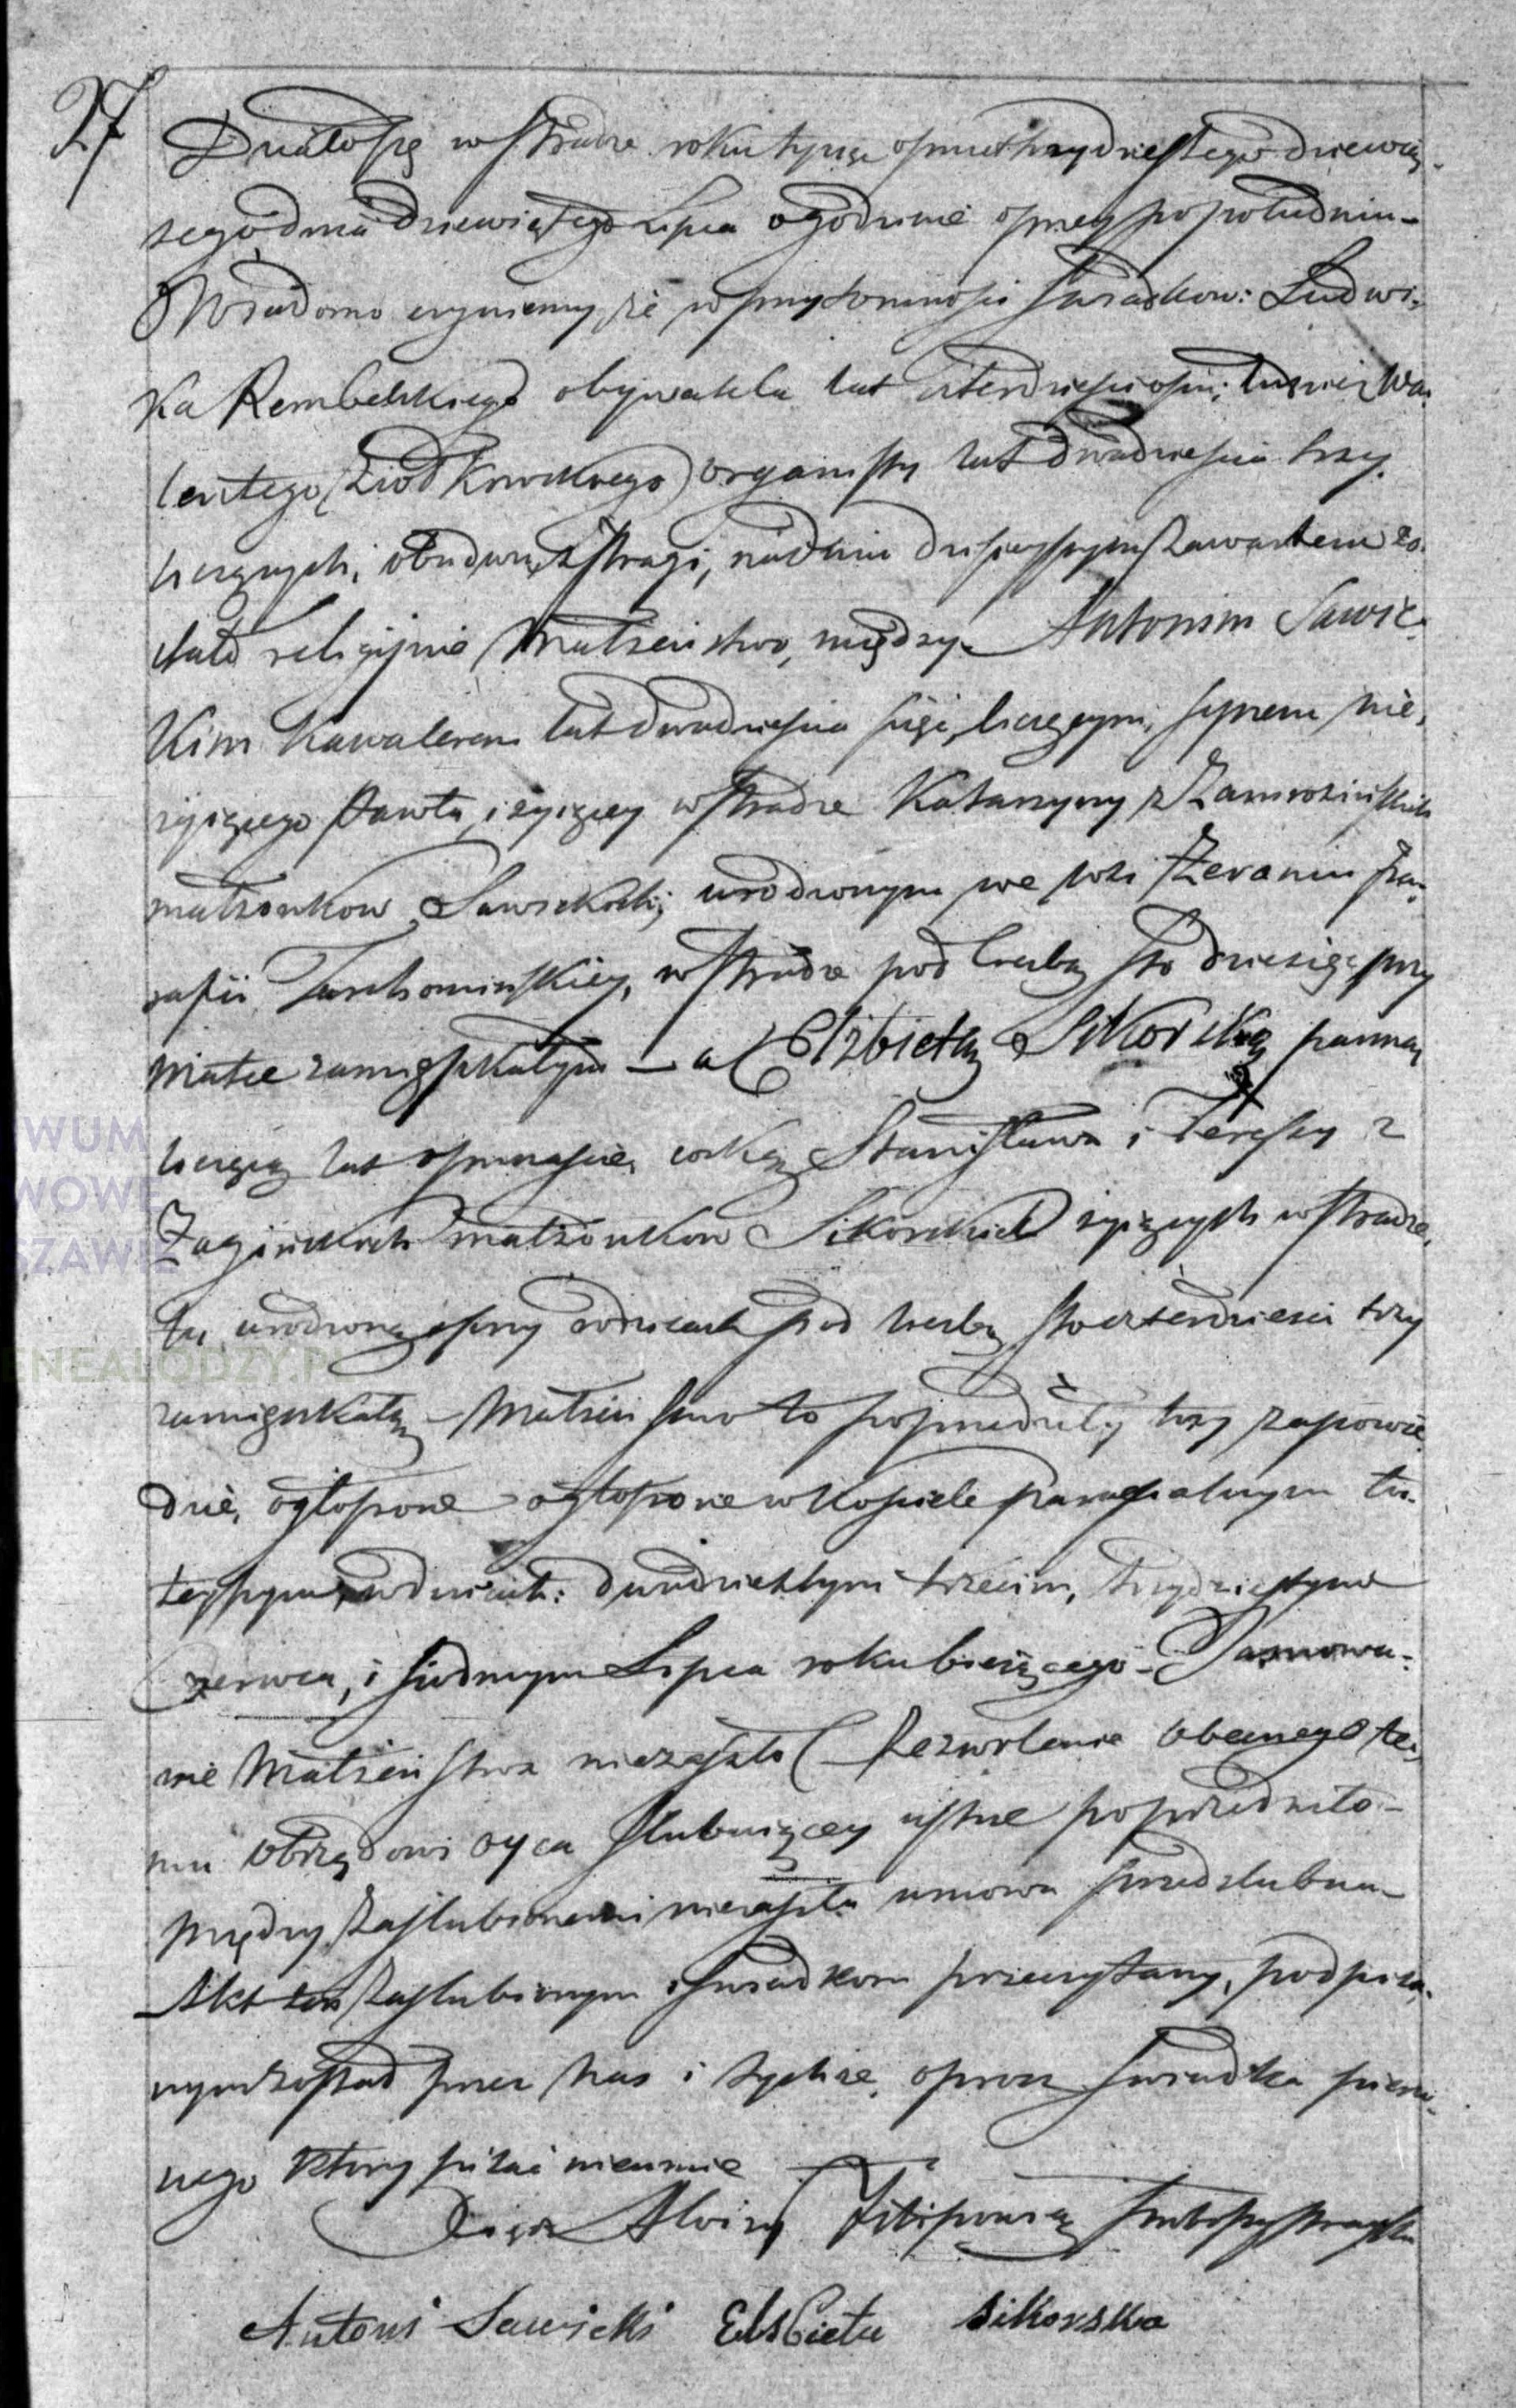 27
Działo się w Pradze roku tysiąc ośmset trzydziestego dziewią-
tego dnia dziewiątego Lipca o godzinie ósmey po południu-
Wiadomo czyniemy, że w przytomności świadków: Ludwi-
ka Rembelskiego obywatela lat czterdzieści ośm; tudzież Wa-
lentego Ziołkowskiego organisty lat dwadzieścia trzy
liczących, obudwu z Pragi, na dniu dzisieyszym zawartem zo-
stało religijnie Małżeństwo, między Antonim Sawic-
kim Kawalerem lat dwadzieścia sześć liczącym, synem nie-
żyjącego Pawła, i żyjącey w Pradze Katarzyny z
małżonków Sawickich; urodzonym we wsi Żeraniu Pa-
rafii Tarchomińskiey, w Pradze pod liczbą sto dziesięć przy
Matce zamięszkałym — a Elżbietą Sikorską panną
liczącą lat ośmnaście, córką Stanisława i Teressy z
Zagórskich małżonków Sikorskich żyjących w Pradze,
tu urodzoną przy rodzicach pod liczbą sto czterdzieści trzy
zamięszkałą — Małżeństwo to poprzedziły trzy zapowie-
dzie, ogłoszone ogłoszone w Kościele Parafialnym tu-
teyszym, w dniach: dwudziestym trzecim, trzydziestym
Czerwca, i siódmym Lipca roku bieżącego - Tamowa-
nie Małżeństwa nie zaszło Pozwolenie obecnego te-
mu obrzędowi oyca ślubującey ustne poprzedziło -
między zaślubionemi nie zaszła umowa przedślubna -
Akt ten zaślubionym i świadkom przeczytany, podpisa-
nym został przez nas i tychże, oprócz świadka pierw-
szego który pisać nieumie
Xiądz Aloizy Filipowicz
Antoni Sawicki Elsbieta Sikorska
WUM
WOWE
SZAWIE
ENEALODZY.PL